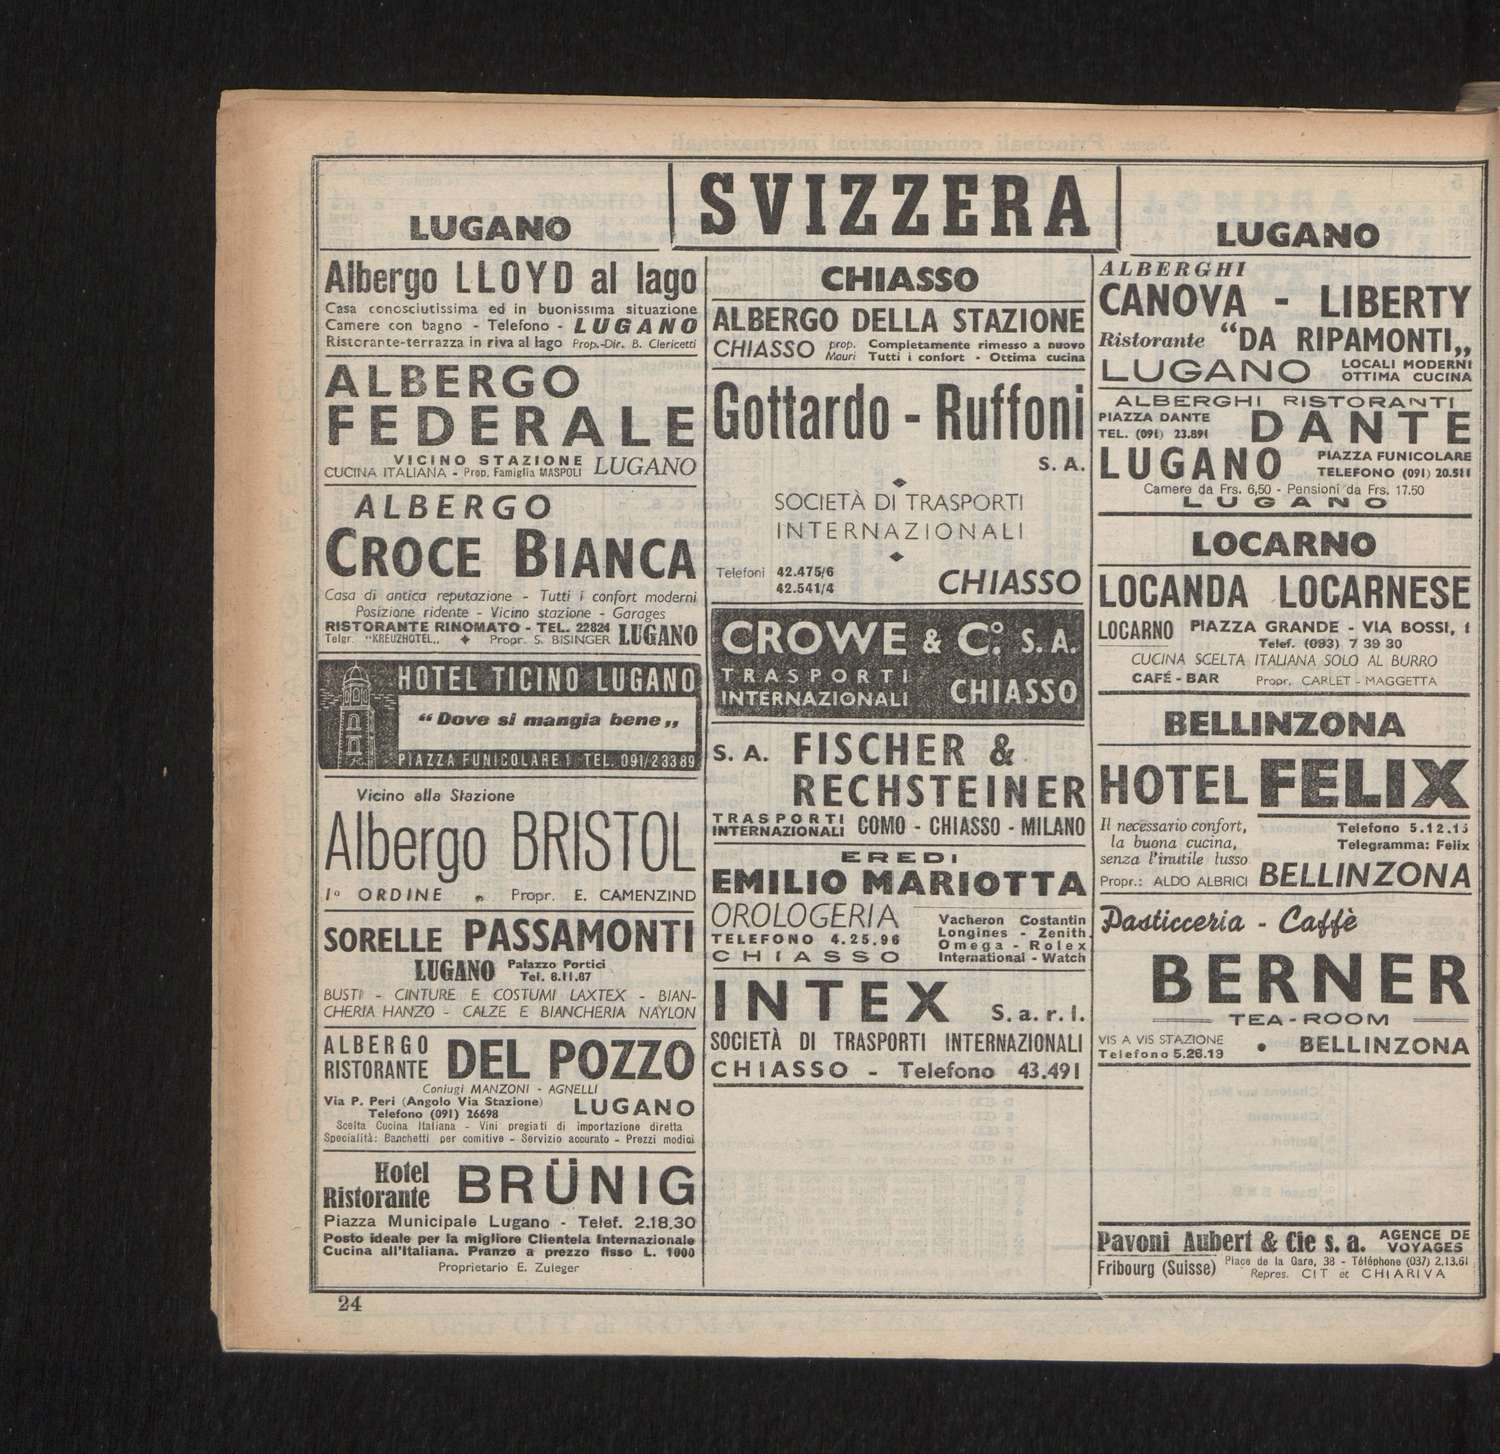 SVIZZERA
LUGANO
Albergo LLOYD al lago
Casa conosciutissima ed in buonissima situazione
Camere con bagno - Telefono - LUGANO
Ristorante-terrazza in riva al lago Prop.-Dir. B. Clericetti
ALBERGO
FEDERALE
VICINO STAZIONE
CUCINA ITALIANA - Prop. Famiglia MASPOLI LUGANO
ALBERGO
CROCE BIANCA
Casa di antica reputazione - Tutti i confort moderni
Posizione ridente - Vicino stazione - Garages
RISTORANTE RINOMATO - TEL. 22824
Telgr. "KREUZHOTEL„ Propr. S. BISINGER LUGANO
HOTEL TICINO LUGANO
"Dove si mangia bene„
PIAZZA FUNICOLARE 1 TEL. 091/23389
Vicino alla Stazione
Albergo BRISTOL
1º ORDINE Propr. E. CAMENZIND
SORELLE PASSAMONTI
LUGANO Palazzo Portici
Tel. 8.11.87
BUSTI - CINTURE E COSTUMI LAXTEX - BIAN-
CHERIA HANZO - CALZE E BIANCHERIA NAYLON
ALBERGO
RISTORANTE DEL POZZO
Coniugi MANZONI - AGNELLI
Via P. Peri (Angolo Via Stazione)
Telefono (091) 26698 LUGANO
Scelta Cucina Italiana - Vini pregiati di importazione diretta
Specialità: Banchetti per comitive - Servizio accurato - Prezzi modici
Hotel
Ristorante BRÜNIG
Piazza Municipale Lugano - Telef. 2.18.30
Posto ideale per la migliore Clientela Internazionale
Cucina all'Italiana. Pranzo a prezzo fisso L. 1000
Proprietario E. Zuleger
CHIASSO
ALBERGO DELLA STAZIONE
CHIASSO prop. Mauri Completamente rimesso a nuovo
Tutti i confort - Ottima cucina
Gottardo - Ruffoni
S. A.
SOCIETÀ DI TRASPORTI
INTERNAZIONALI
Telefoni 42.475/6
42.541/4 CHIASSO
CROWE & Cº. S. A.
TRASPORTI
INTERNAZIONALI CHIASSO
S. A. FISCHER &
RECHSTEINER
TRASPORTI
INTERNAZIONALI COMO - CHIASSO - MILANO
EREDI
EMILIO MARIOTTA
OROLOGERIA
TELEFONO 4.25.96
CHIASSO
Vacheron Costantin
Longines - Zenith
Omega - Rolex
International - Watch
INTEX S.a.r.l.
SOCIETÀ DI TRASPORTI INTERNAZIONALI
CHIASSO - Telefono 43.491
LUGANO
ALBERGHI
CANOVA - LIBERTY
Ristorante "DA RIPAMONTI„
LUGANO LOCALI MODERNI
OTTIMA CUCINA
ALBERGHI RISTORANTI
PIAZZA DANTE
TEL. (091) 23.891 DANTE
LUGANO PIAZZA FUNICOLARE
TELEFONO (091) 20.511
Camere da Frs. 6,50 - Pensioni da Frs. 17.50
LUGANO
LOCARNO
LOCANDA LOCARNESE
LOCARNO PIAZZA GRANDE - VIA BOSSI, 1
Telef. (093) 7 39 30
CUCINA SCELTA ITALIANA SOLO AL BURRO
CAFÉ - BAR Propr. CARLET - MAGGETTA
BELLINZONA
HOTEL FELIX
Il necessario confort,
la buona cucina,
senza l'inutile lusso
Telefono 5.12.15
Telegramma: Felix
Propr.: ALDO ALBRICI BELLINZONA
Pasticceria - Caffè
BERNER
TEA-ROOM
VIS A VIS STAZIONE
Telefono 5.26.19 • BELLINZONA
Pavoni Aubert & Cie s. a. AGENCE DE
VOYAGES
Fribourg (Suisse) Place de la Gare, 38 - Téléphone (037) 2.13.61
Repres. CIT et CHIARIVA
24